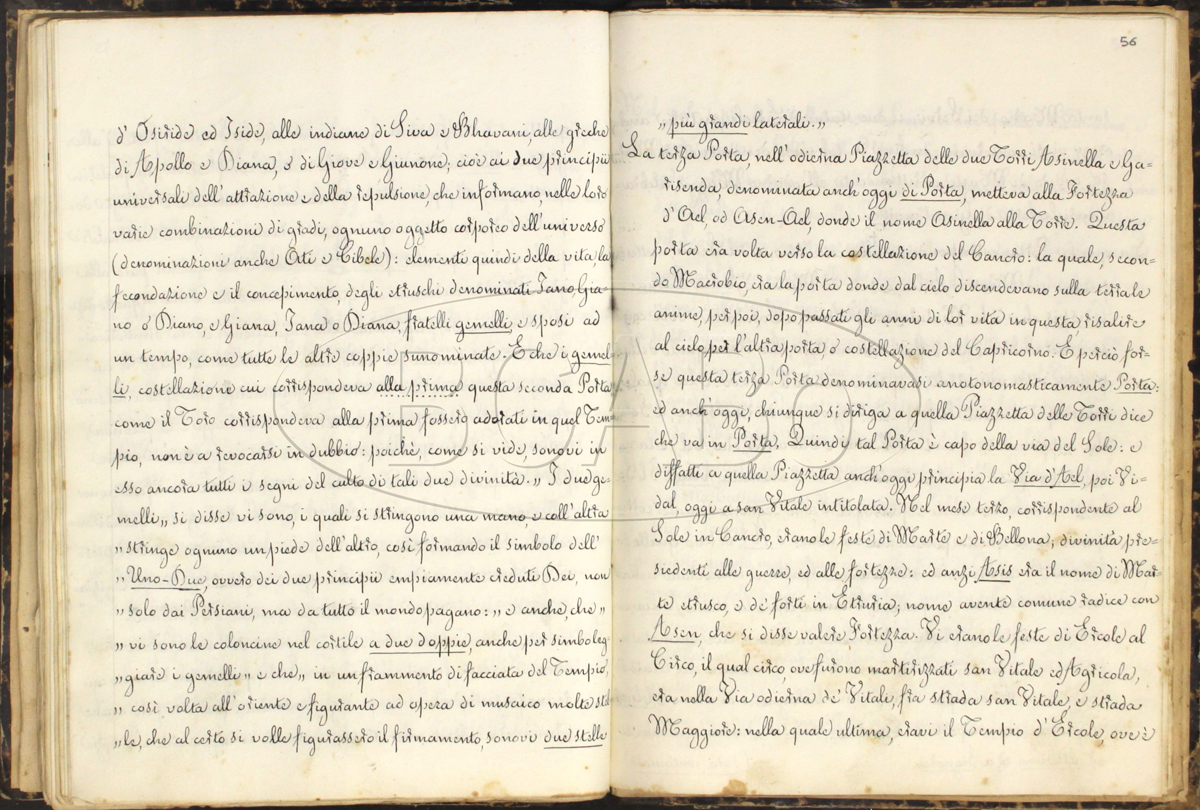 d'Osiride ed Iside, alle indiane di Siva e Bhavani, alle greche
di Apollo e Diana, e di Giove e Giunone; cioè ai due principii
universali dell'attrazione e della repulsione, che informano, nelle loro
varie combinazioni di gradi, ognuno oggetto corporeo dell'universo
(denominazioni anche Ati e Cibele): elementi quindi della vita, la
fecondazione e il concepimento, degli etruschi denominati Jano, Gia=
no o Diano, e Giana, Jana o Diana, fratelli gemelli, e sposi ad
un tempo, come tutte le altre coppie sunominate. E che i gemel=
li, costellazione cui corrispondeva alla prima questa seconda Porta
come il Toro corrispondeva alla prima fossero adorati in quel Tem=
pio, non è a revocarsi in dubbio: poichè, come si vide, sonovi in
esso ancora tutti i segni del culto di tali due divinità. „ I due ge=
melli „ si disse vi sono, i quali si stringono una mano, e coll'altra
„ stringe ognuno un piede dell'altro, così formando il simbolo dell'
„ Uno-Due, ovvero dei due principii empiamente creduti Dei, non
„ solo dai Persiani, ma da tutto il mondo pagano: „ e anche, che „
„ vi sono le coloncine nel cortile a due doppie, anche per simboleg=
„ giare i gemelli „ e che „ in un frammento di facciata del Tempio,
„ così volta all'oriente e figurante ad opera di musaico molte stel
„ le, che al certo si volle figurassero il firmamento, sonovi due stelle
56
„ più grandi laterali. „
La terza Porta, nell'odierna Piazzetta delle due Torri Asinella e Ga=
risenda, denominata anch'oggi di Porta, metteva alla Fortezza
d'Ael, od Asen-Ael, donde il nome Asinella alla Torre. Questa
porta era volta verso la costellazione del Cancro: la quale, secon=
do Macrobio, era la porta donde dal cielo discendevano sulla terra le
anime, per poi, dopo passati gli anni di lor vita in questa risalire
al cielo, per l'altra porta o costellazione del Capricorno. E perciò for=
se questa terza Porta denominavasi anotonomasticamente Porta:
ed anch'oggi, chiunque si diriga a quella Piazzetta delle Torri dice
che va in Porta. Quindi tal Porta è capo della via del Sole: e
diffatti a quella Piazzetta anch'oggi principia la Via d'Ael, poi Vi=
dal, oggi a san Vitale intitolata. Nel mese terzo, corrispondente al
Sole in Cancro, erano le feste di Marte e di Bellona, divinità pre=
siedenti alle guerre, ed alle fortezze: ed anzi Asis era il nome di Mar=
te etrusco, e de' forti in Etruria; nome avente comune radice con
Asen, che si disse valere Fortezza. Vi erano le feste di Ercole al
Circo, il qual circo, ove furono martirizzati san Vitale ed Agricola,
era nella Via odierna de' Vitali, fra strada san Vitale, e strada
Maggiore: nella quale ultima, eravi il Tempio d'Ercole, ove è